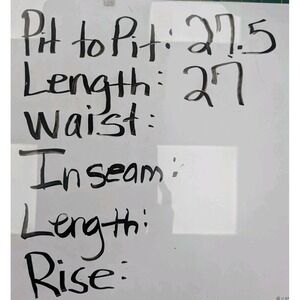 Pit to Pit: 27.5
Length: 27
Waist:
Inseam:
Length:
Rise: